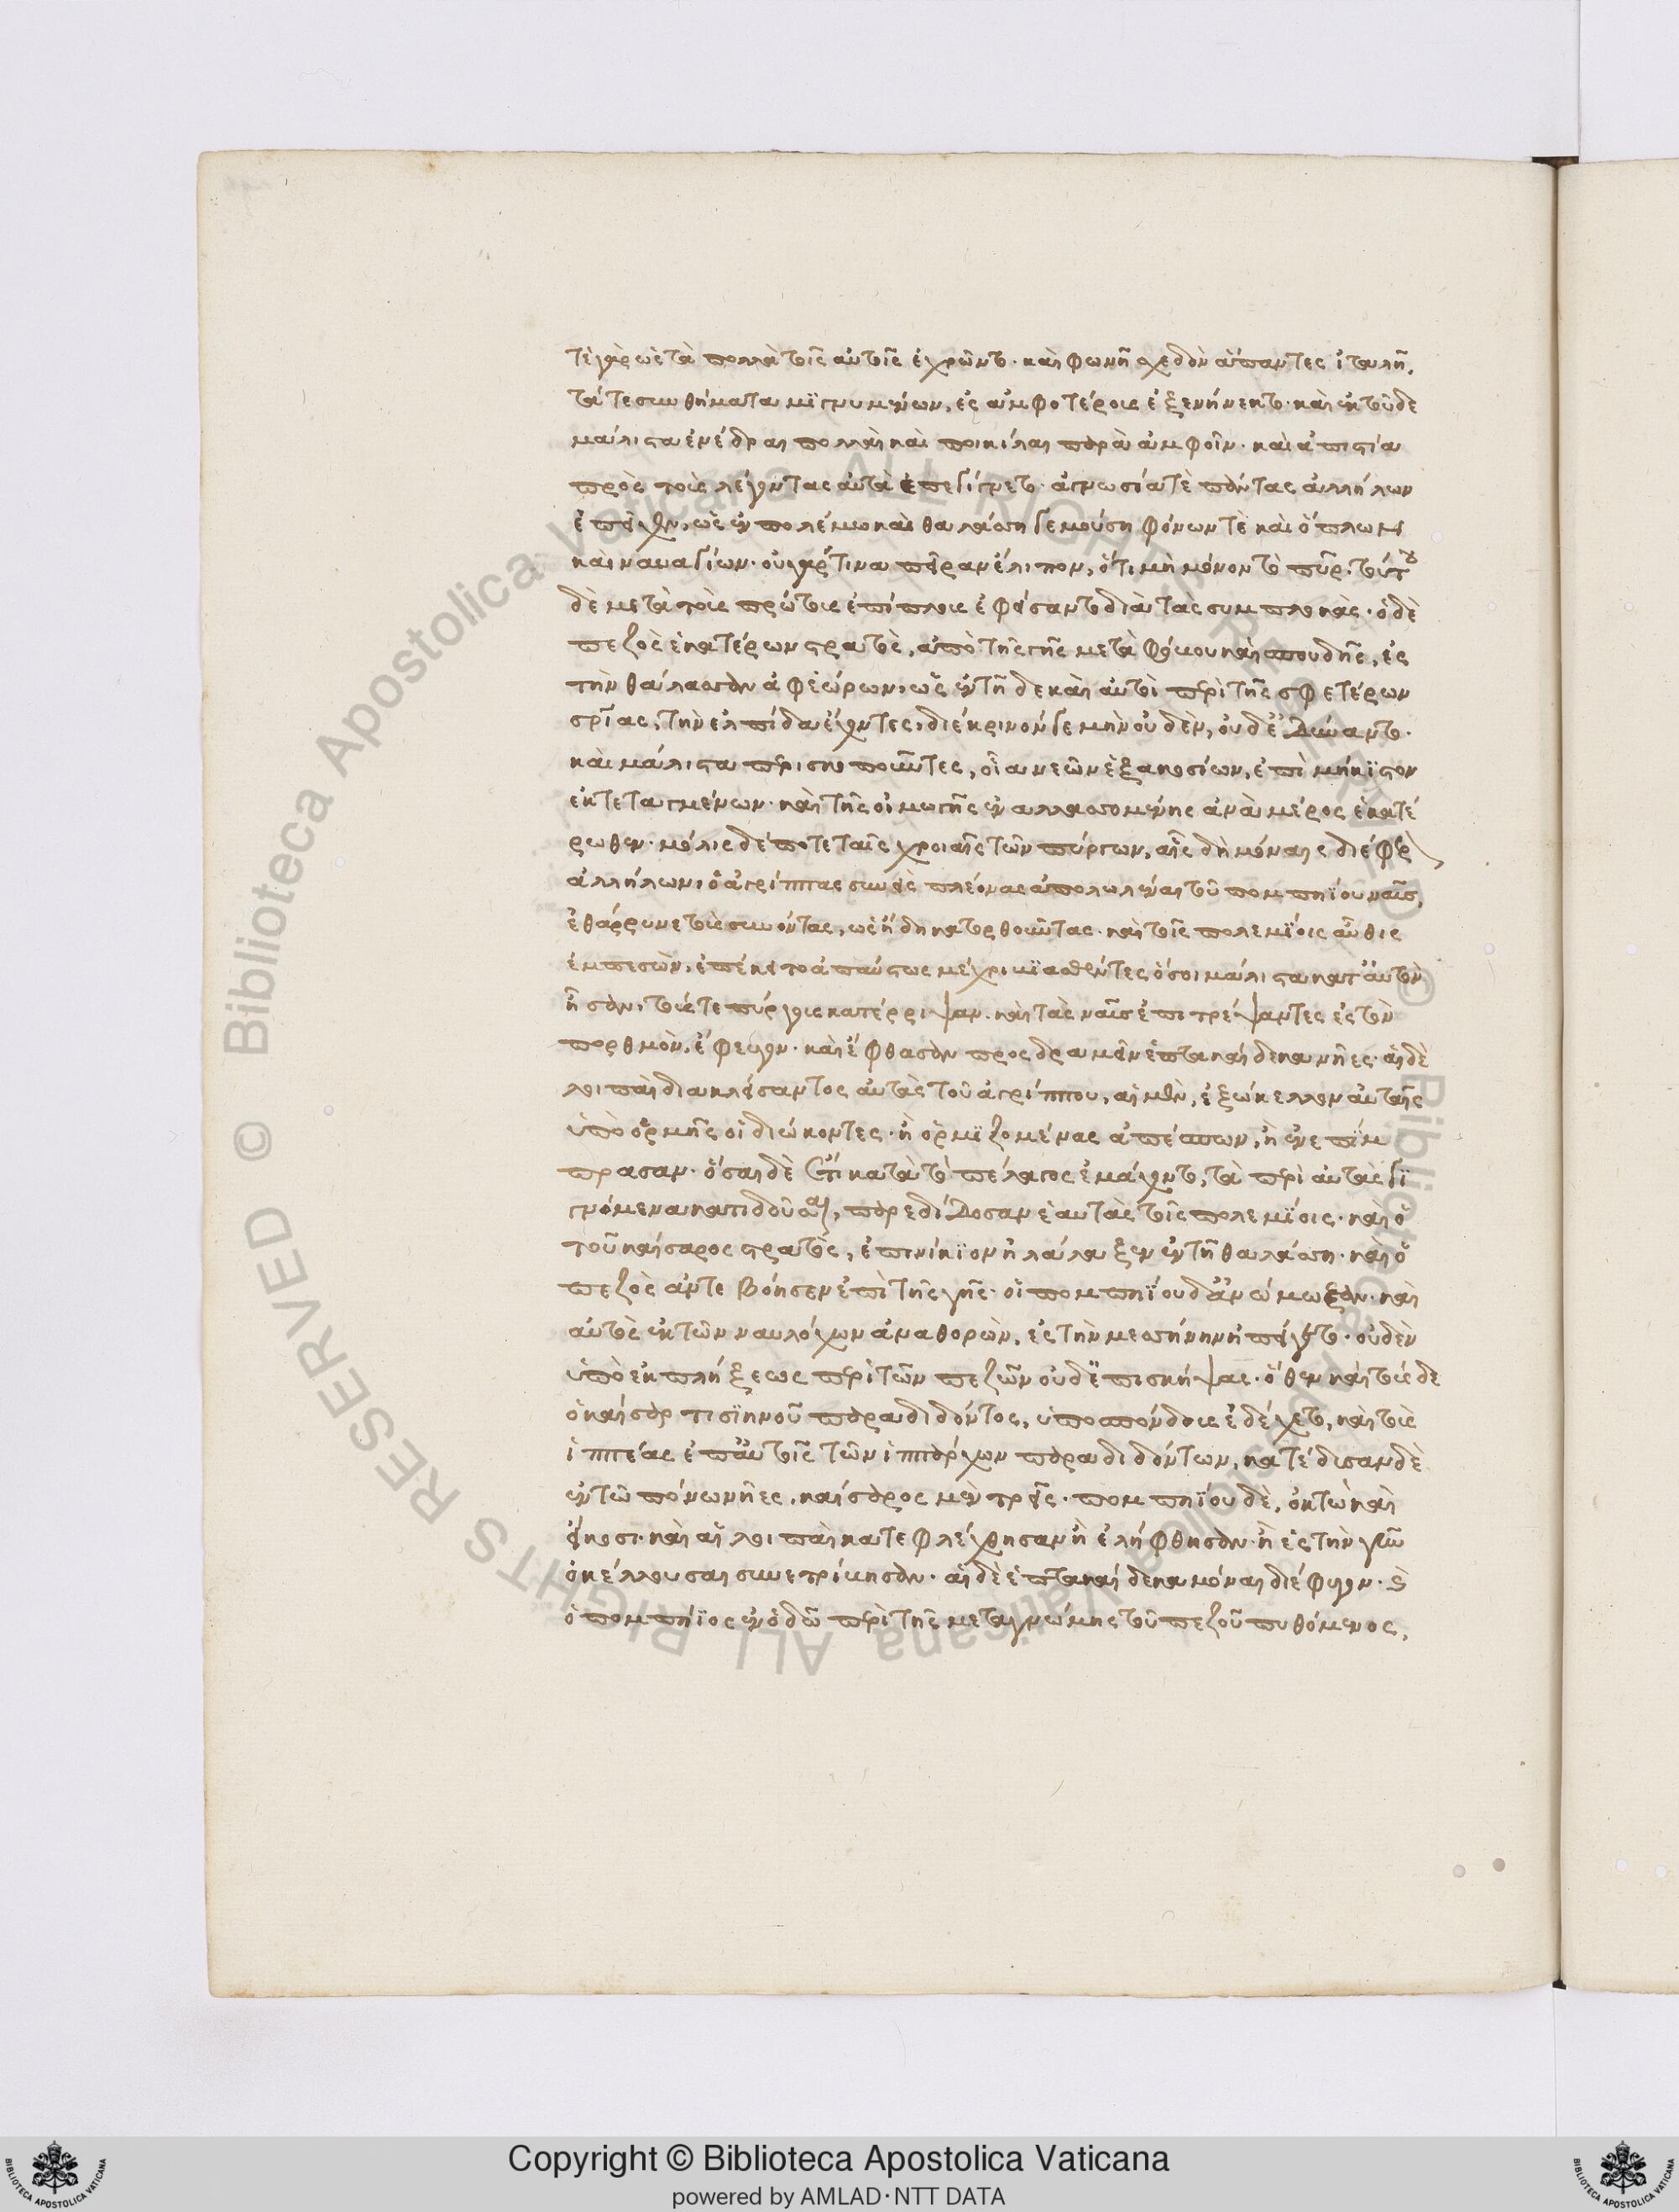 τὲ γὰρ ὡς τὰ πολλὰ τοῖς αὐτοῖς ἐχρῶντο. καὶ φωνῇ σχεδὸν ἅπαντες ἰταλῇ,
τά τε συνθήματα μιγνυμένων, ἐς ἀμφοτέροις ἐξενήνεκτο. καὶ ἐκ τοῦδε
μάλιστα ἐνέδραι πολλαὶ καὶ ποικίλαι παρὰ ἀμφοῖν. καὶ ἀπιστία
πρὸς τοὺς λέγοντας αὐτὰ ἐπεγίγνετο. ἀγνωσία τὲ πάντας ἀλλήλων
ἐπεῖχεν, ὡς ἐν πολέμω καὶ θαλάσση γεμούση φόνων τὲ καὶ ὅπλων
καὶ ναυαγίων. οὐ γάρ τινα πεῖραν ἔλιπον, ὅτι μὴ μόνον τὸ πῦρ. τούτου
δὲ μετὰ τοὺς πρώτους ἐπίπλους ἐφείσαντο διὰ τὰς συμπλοκάς. ὁ δὲ
πεζὸς ἑκατέρων στρατὸς, ἀπὸ τῆς γῆς μετὰ φόβου καὶ σπουδῆς, ἐς
τὴν θάλασσαν ἀφεώρων, ὡς ἐν τῇδε καὶ αὐτοὶ περὶ τῆς σφετέρων
σρίας, τὴν ἐλπίδα ἔχοντες, διέκρινόν γε μὴν οὐδὲν, οὐδ' ἐδύναντο.
καὶ μάλιστα περισκοποῦντες, οἷα νεῶν ἑξακοσίων, ἐπὶ μήκιστον
ἐκτεταγμένων. καὶ τῆς οἰμωγῆς ἐναλλασσομένης ἀνὰ μέρος ἑκατέ
ρωθεν. μόλις δέ ποτε ταῖς χροιαῖς τῶν πύργων, αἷς δὴ μόναις διέφερ
ἀλλήλων, ὁ ἀγρίππας συνεὶς πλέονας ἀπολωλέναι τοῦ πομπηΐου ναῦς,
ἐθάρρυνε τοὺς συνόντας, ὡς ἤδη κατορθοῦντας. καὶ τοῖς πολεμίοις αὖθις
ἐμπεσὼν, ἐπέκειτο ἀπαύστως μέχρι βιασθέντες ὅσοι μάλιστα κατ' αὐτὸν
ἦσαν, τούς τε πύργους κατέρριψαν. καὶ τὰς ναῦς ἐπιτρέψαντες ἐς τὸν
πορθμὸν, ἔφευγον. καὶ ἔφθασαν προσδραμεῖν ἑπτακαίδεκα νῆες. αἱ δὲ
λοιπαὶ διακλείσαντος αὐτὰς τοῦ ἀγρίππου, αἱ μὲν, ἐξώκελλον αὐταῖς
ὑπὸ ὁρμῆς οἱ διώκοντες. ἢ ὁρμιζομένας ἀπέσπων, ἢ ἐνεπίμ
πρασαν. ὅσαι δὲ ἔτι κατὰ τὸ πέλαγος ἐμάχοντο, τὰ περὶ αὐτὰς γι
γνόμενα κατιδοῦσαι, παρεδίδοσαν ἑαυτὰς τοῖς πολεμίοις. καὶ ὁ
τοῦ καίσαρος στρατὸς, ἐπινίκιον ἠλάλαξεν ἐν τῇ θαλάσση. καὶ ὁ
πεζὸς ἀντεβόησεν ἐπὶ τῆς γῆς. οἱ πομπηΐου δ' ἀνώμωξαν. καὶ
αὐτὸς ἐκ τῶν ναυλόχων ἀναθορὼν, ἐς τὴν μεσσήνην ἠπείγετο. οὐδὲν
ὑπὸ ἐκπλήξεως περὶ τῶν πεζῶν οὐδ' ἐπισκήψας. ὅθεν καὶ τούσδε
ὁ καίσαρ τισιηνοῦ παραδιδόντος, ὑποσπόνδους ἐδέχετο, καὶ τοὺς
ἱππέας ἐπ' αὐτοῖς τῶν ἱππάρχων παραδιδόντων, κατέδυσαν δὲ
ἐν τῶ πόνω νῆες, καίσαρος μὲν τρεῖς. πομπηΐου δὲ, ὀκτὼ καὶ
εἴκοσι. καὶ αἱ λοιπαὶ κατεφλέχθησαν ἢ ἐλήφθησαν. ἢ ἐς τὴν γῆν
ὀκέλλουσαι συνετρίβησαν. αἱ δὲ ἑπτακαίδεκα μόναι διέφυγον. καὶ
ὁ πομπήϊος ἐν ὁδῶ περὶ τῆς μεταγνώμης τοῦ πεζοῦ πυθόμενος,
© Biblioteca Apostolica Vaticana ALL RIGHTS RESERVED
Copyright © Biblioteca Apostolica Vaticana
powered by AMLAD·NTT DATA
BIBLIOTECA APOSTOLICA VATICANA
BIBLIOTECA APOSTOLICA VATICANA